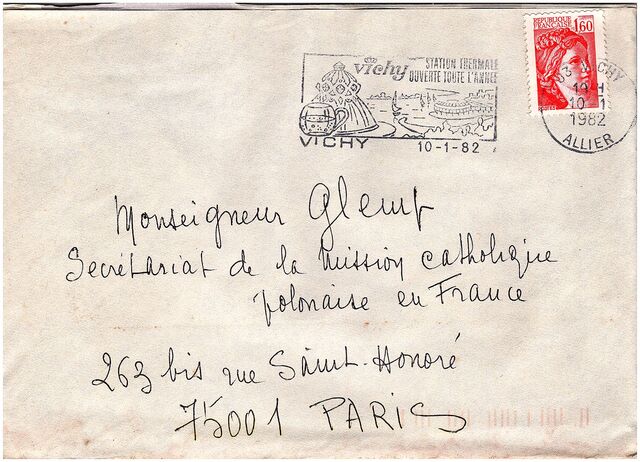 REPUBLIQUE FRANCAISE 1,60
vichy
STATION THERMALE
OUVERTE TOUTE L'ANNEE
VICHY 10-1-82
03 VICHY
19H
10-1
1982
ALLIER
Monseigneur Glemp
Secrétariat de la Mission catholique
polonaise en France
263 bis rue Saint-Honoré
75001 PARIS